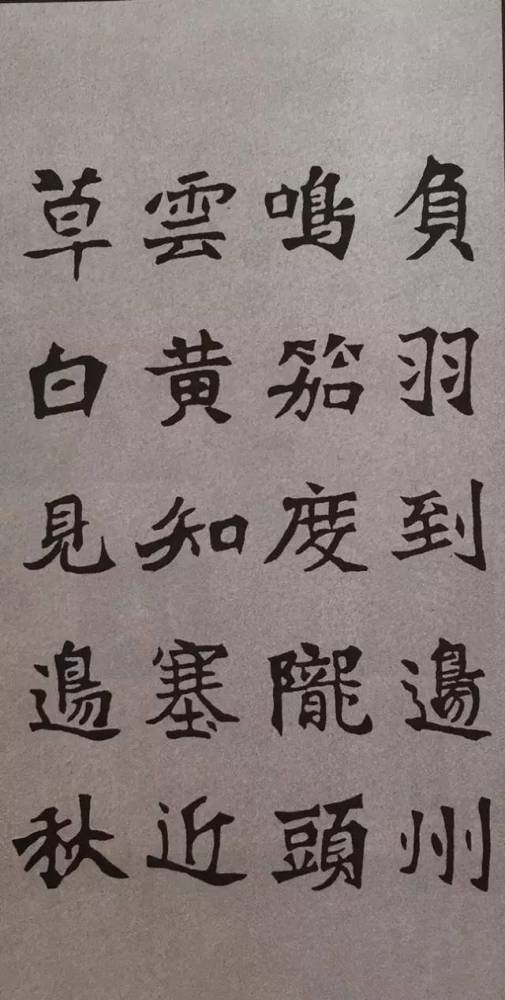 負羽到邊州
鳴笳度隴頭
雲黄知塞近
草白見邊秋